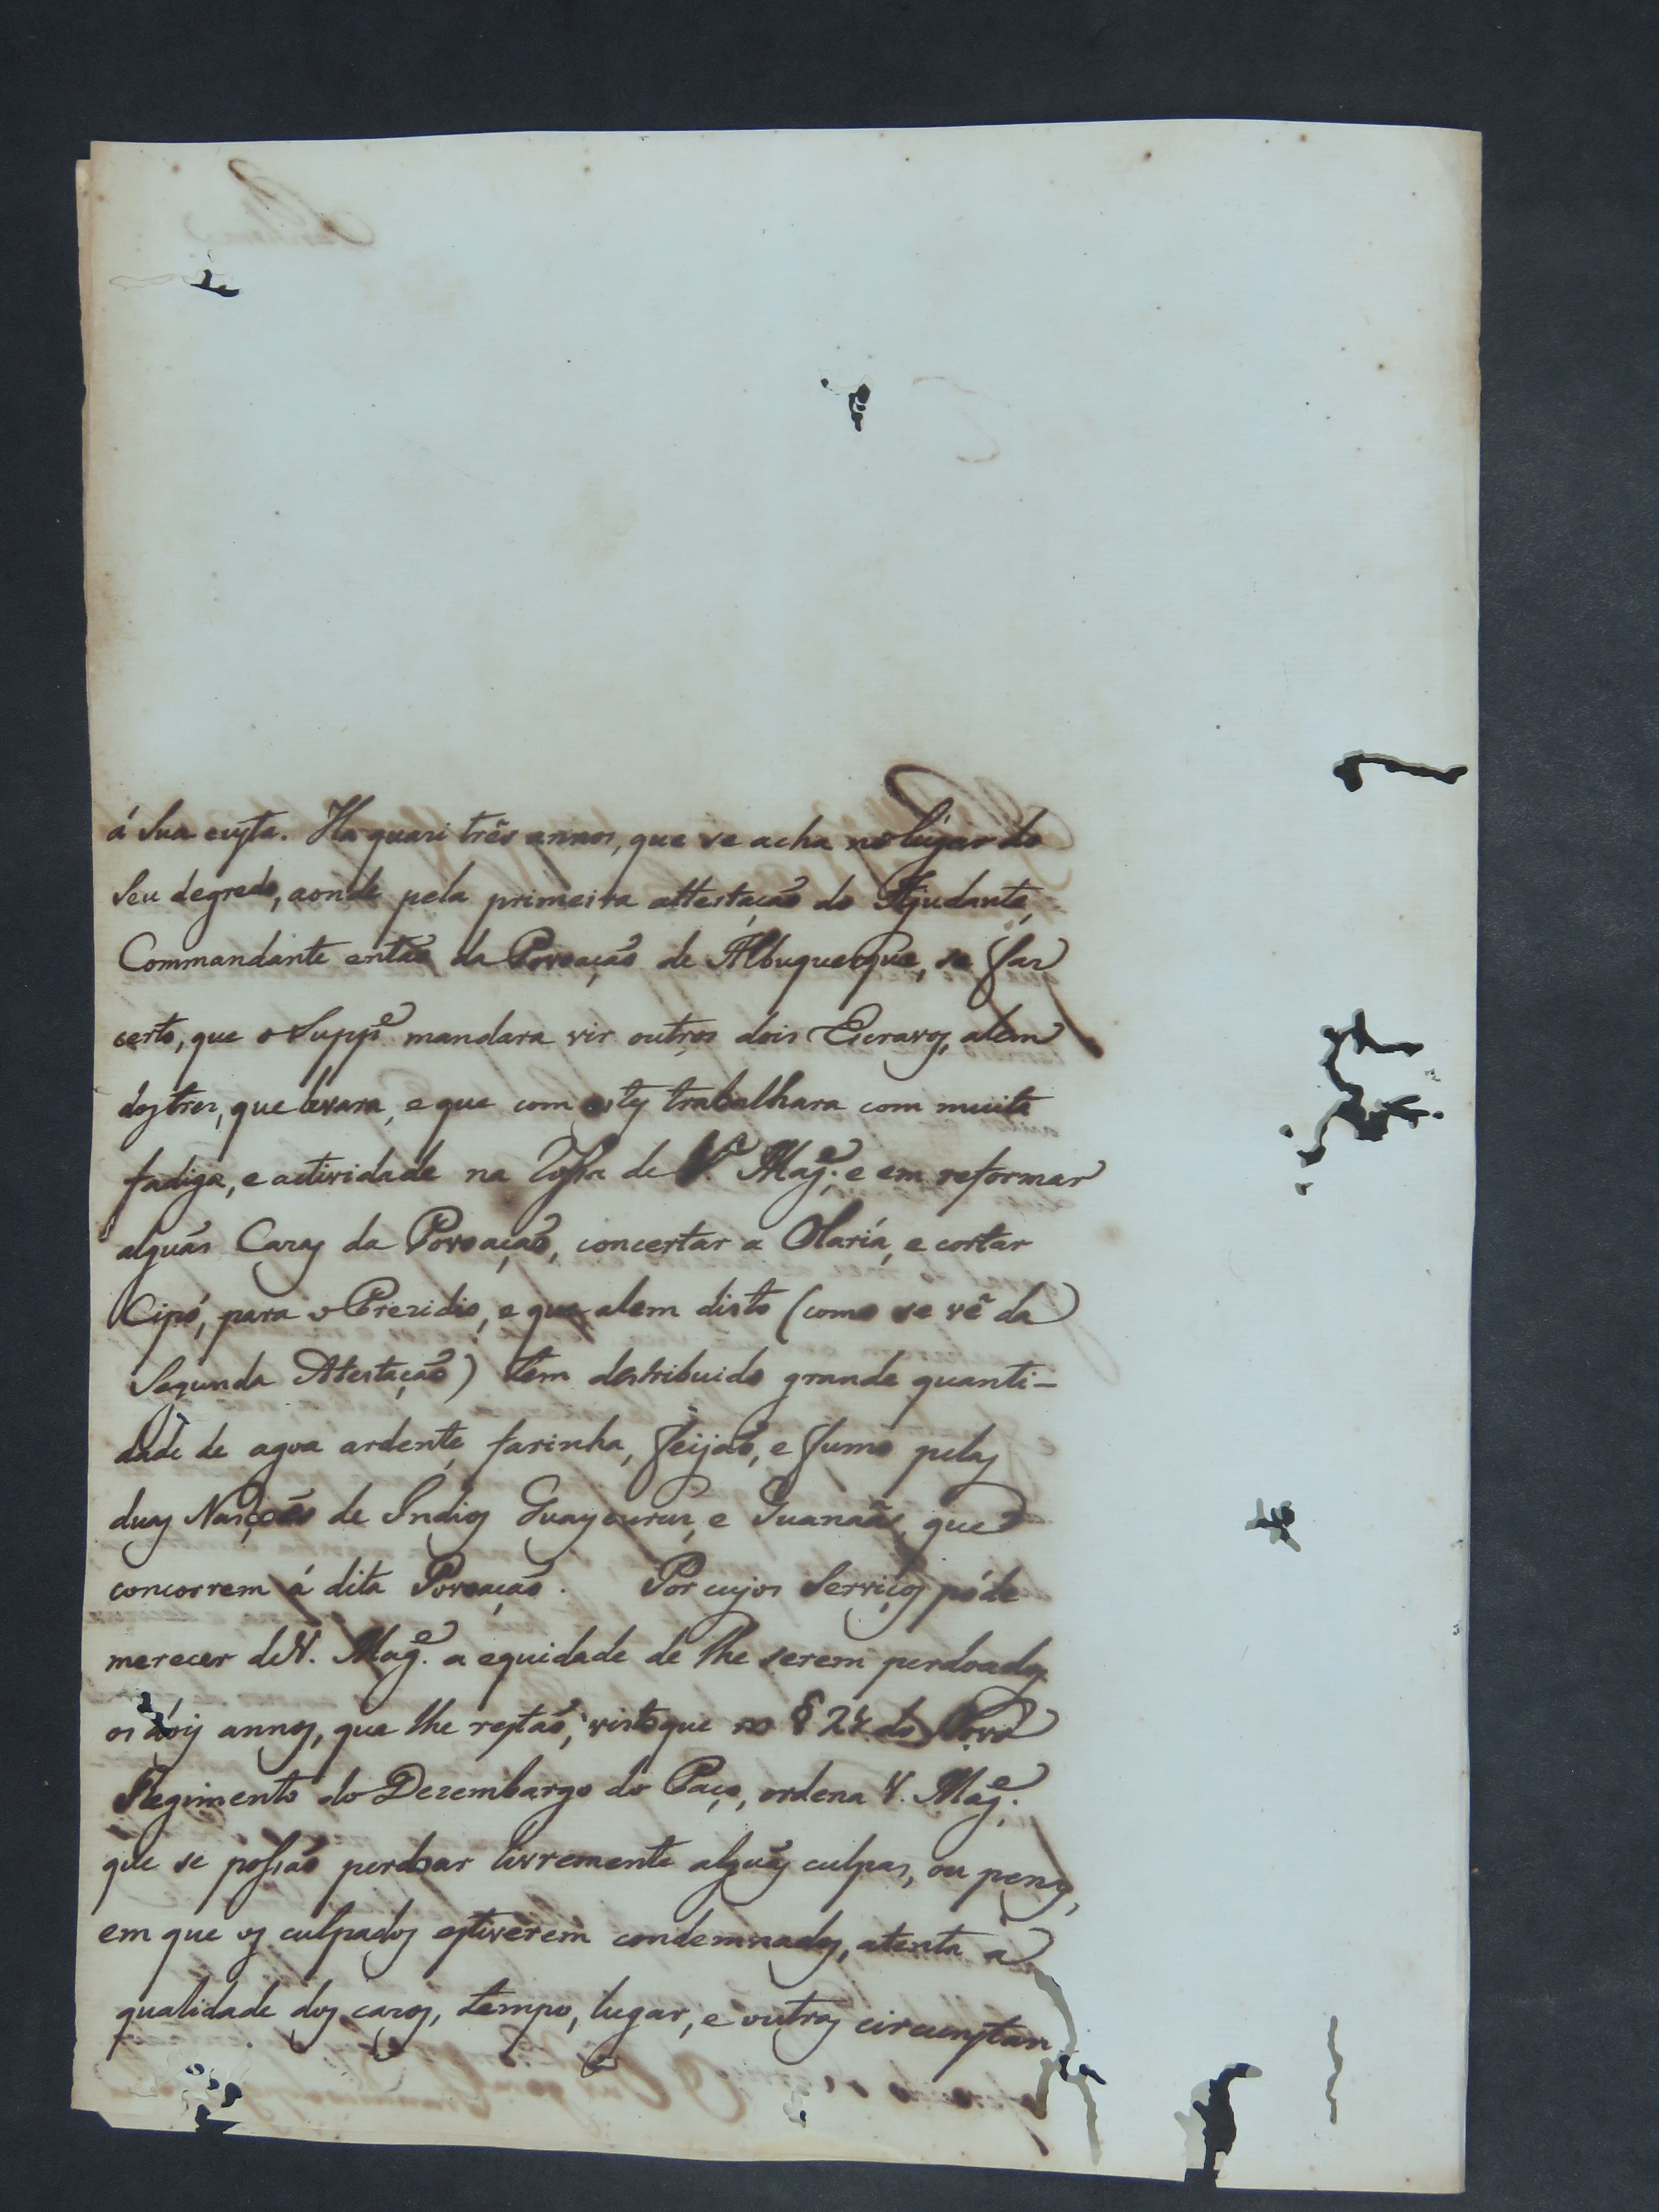 á Sua custa. Ha quasi três annos, que se acha no lugar do
Seu degredo, aonde pela primeira attestação do Ajudante,
Commandante então da Povoação de Albuquerque, se faz
certo, que o Supp.e mandara vir outros dois Escravos, alem
dos tres, que levara, e que com estes trabalhara com muita
fadiga, e actividade na Rossa de V.a Mag.e, e em reformar
alguãs Cazas da Povoação, concertar a Olaría, e cortar
Cipó, para o Prezidio, e que alem disto (como se vê da
Segunda Atestação) tem destribuido grande quanti-
dade de agoa ardente, farinha, feijaõ, e fumo pelas
duas Nasções de Indios Guaycurus, e Guanaãs, que
concorrem á dita Povoação. Por cujos Serviços póde
merecer de V. Mag.e a equidade de lhe serem perdoados
os dois annos, que lhe restaõ, visto que no § 24. do Novo
Regimento do Dezembargo do Paço, ordena V. Mag.e
que se possaõ perdoar livremente alguãs culpas, ou penas,
em que os culpados estiverem condemnados, atenta a
qualidade dos cazos, tempo, lugar, e outras circunstan